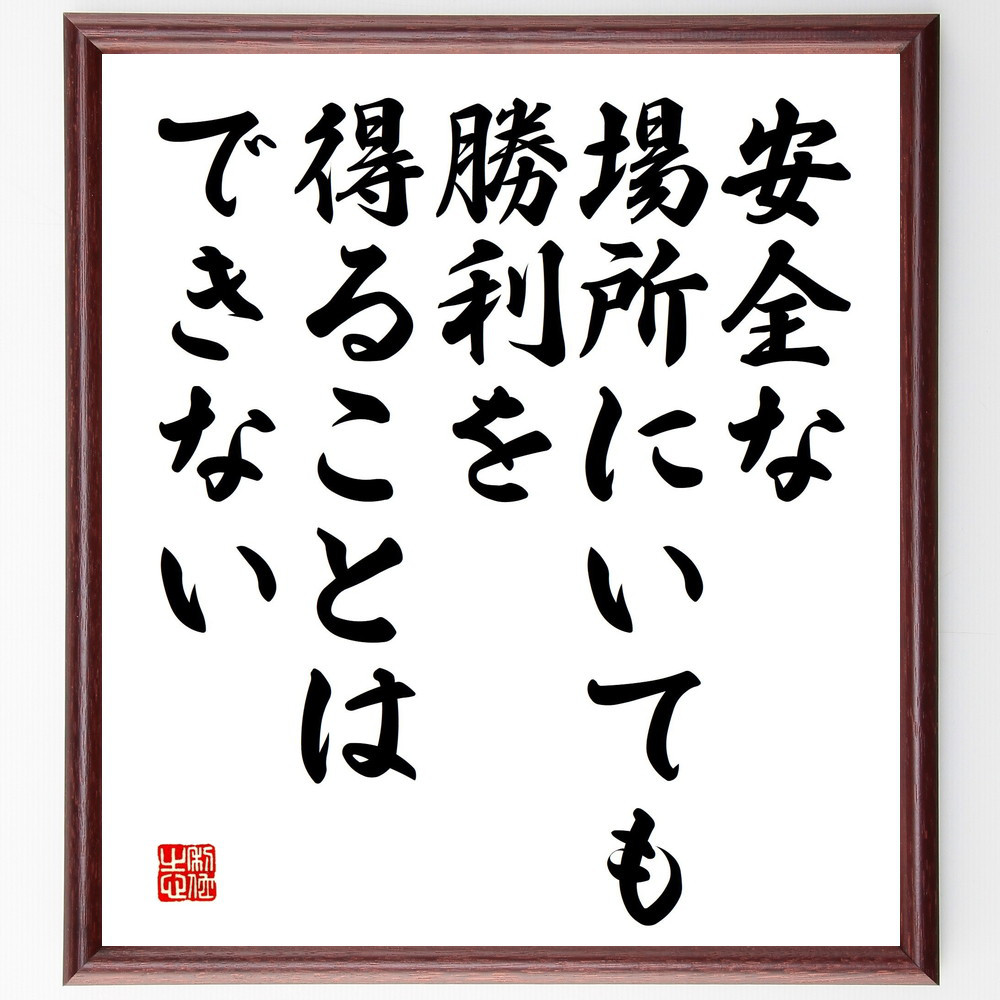 安全な
場所にいても
勝利を
得ることは
できない